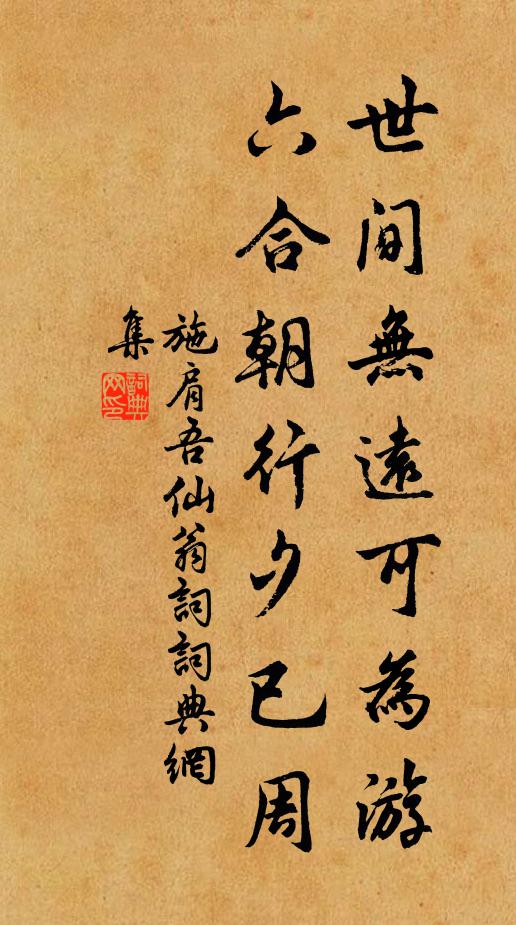 世間無遠可為游
六合朝行夕已周
施肩吾仙翁詞詞典網
集
詞典網印